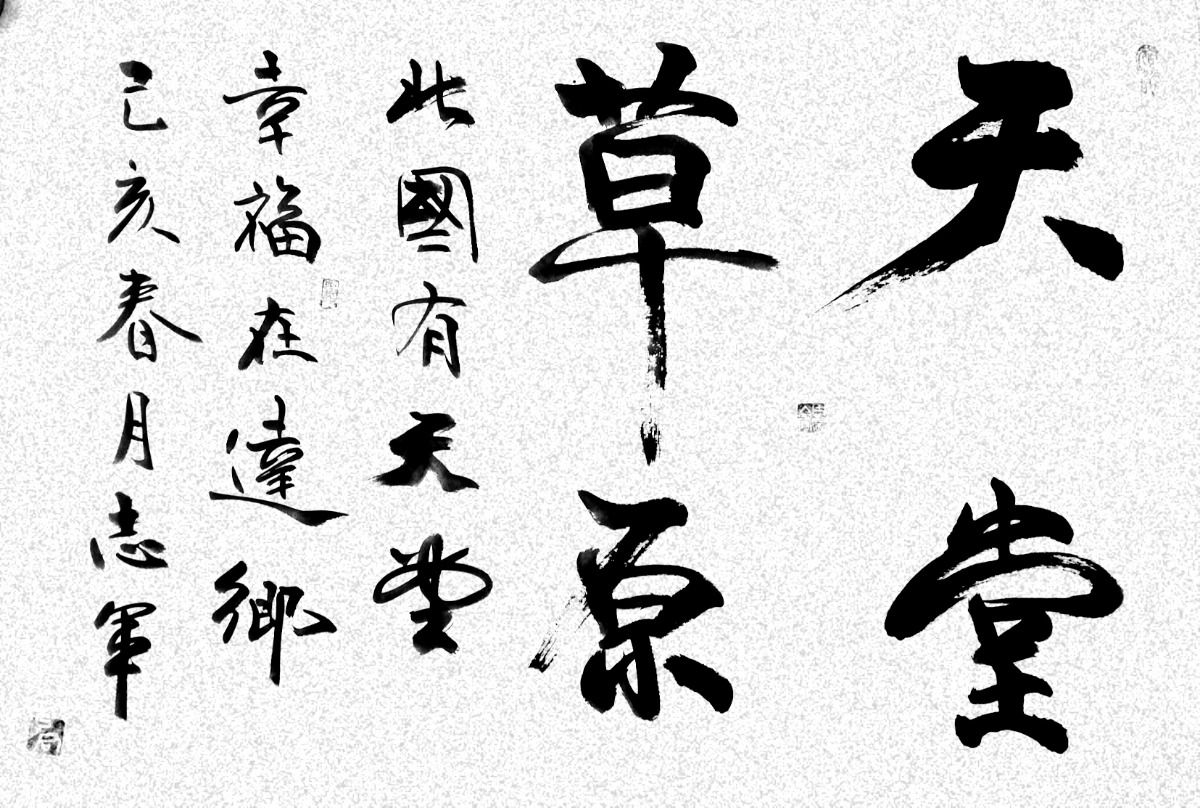 天堂
草原
北國有天堂
幸福在達鄉
己亥春月志軍